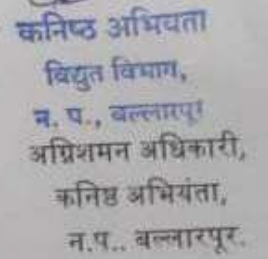 कनिष्ठ अभियंता
विद्युत विभाग,
न. प., बल्लारपूर
अग्निशमन अधिकारी,
कनिष्ठ अभियंता,
न.प.. बल्लारपूर.